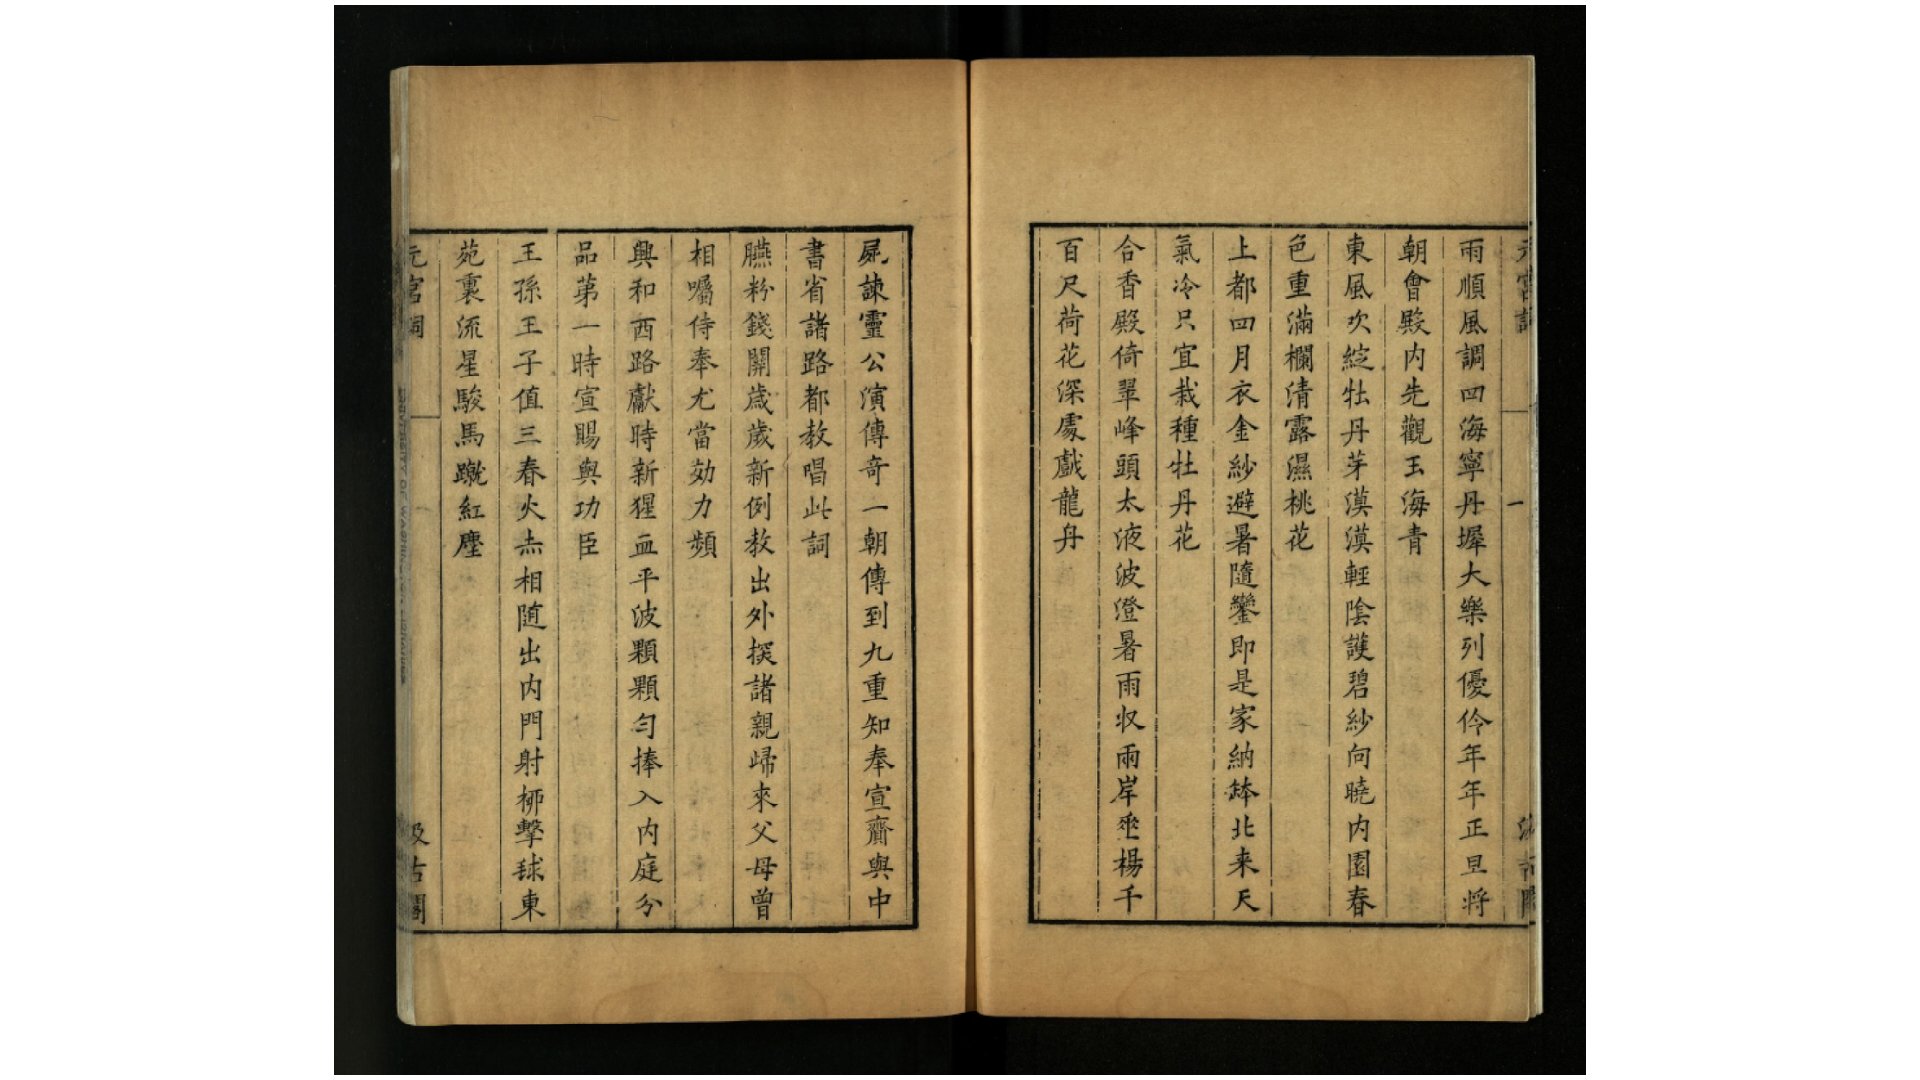 元宮詞 一 汲古閣
雨順風調四海寧丹墀大樂列優伶年年正旦將
朝會殿内先觀玉海青
東風吹綻牡丹芽漠漠輕陰護碧紗向曉内園春
色重滿欄清露濕桃花
上都四月衣金紗避暑隨鑾即是家納鉢北来天
氣冷只宜栽種牡丹花
合香殿倚翠峰頭太液波澄暑雨収兩岸垂楊千
百尺荷花深處戲龍舟
屍諫靈公演傳奇一朝傳到九重知奉宣齎與中
書省諸路都教唱此詞
臙粉錢開歳歲新例教出外探諸親歸來父母曾
相囑侍奉尤當効力頻
興和西路獻時新猩血平波顆顆勻捧入内庭分
品第一時宣賜與功臣
王孫王子值三春火赤相随出内門射柳擊毬東
苑裏流星駿馬蹴紅塵
元宮詞 汲古閣